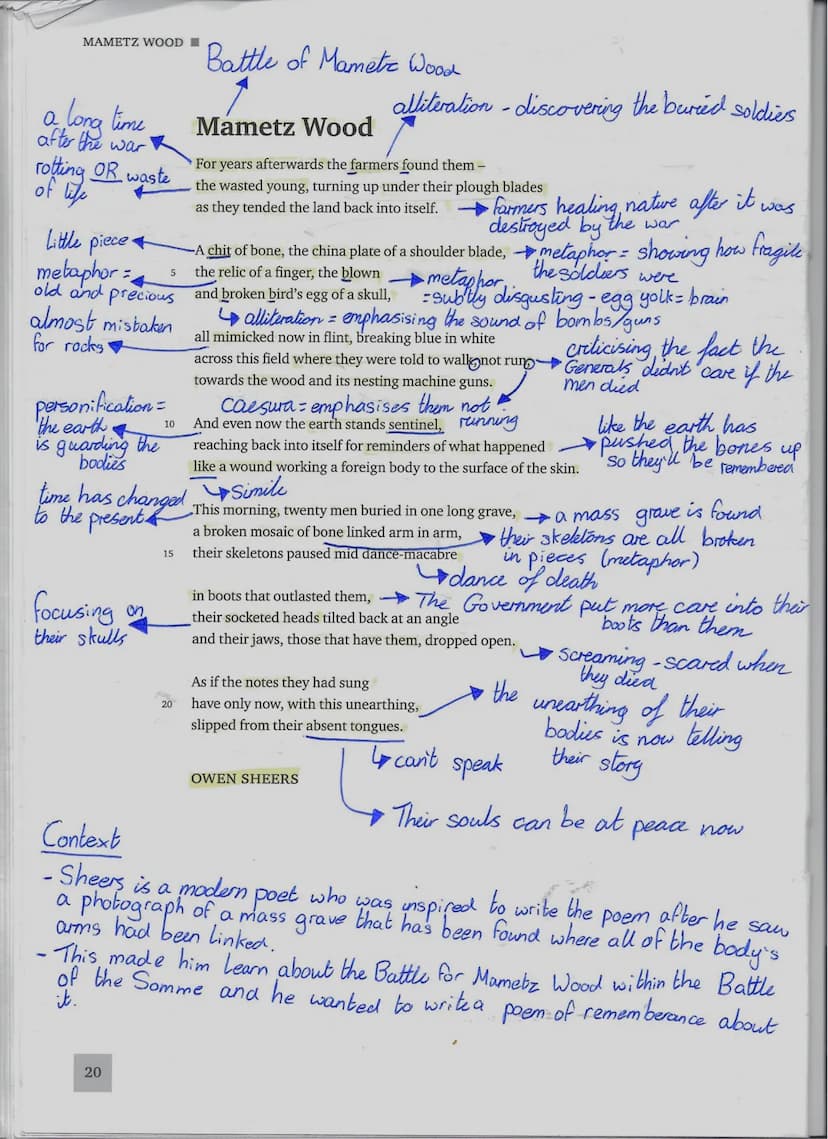 MAMETZ WOOD ■
Battle of Mametz Wood
alliteration - discovering the buried soldiers
a long time
after the war
rotting OR waste
of life
Mametz Wood
For years afterwards the farmers found them –
the wasted young, turning up under their plough blades
as they tended the land back into itself.
farmers healing nature after it was
destroyed by the war
Little piece
A chit of bone, the china plate of a shoulder blade,
metaphor = showing how fragile
the soldiers were
metaphor =
old and precious
5 the relic of a finger, the blown
metaphor
= subtly disgusting - egg yolk = brain
and broken bird's egg of a skull,
alliteration = emphasising the sound of bombs/guns
almost mistaken
for rocks
all mimicked now in flint, breaking blue in white
across this field where they were told to walk, not run,
towards the wood and its nesting machine guns.
criticising the fact the
Generals didnt care if the
men died
caesura = emphasises them not
running
personification =
the earth
is guarding the
bodies
10 And even now the earth stands sentinel,
reaching back into itself for reminders of what happened
like a wound working a foreign body to the surface of the skin.
like the earth has
pushed the bones up
so they'll be remembered
Simile
time has changed
to the present
This morning, twenty men buried in one long grave,
a mass grave is found
a broken mosaic of bone linked arm in arm,
their skeletons are all broken
in pieces (metaphor)
15 their skeletons paused mid dance-macabre
dance of death
in boots that outlasted them,
The Government put more care into their
boots than them
focusing on
their skulls
their socketed heads tilted back at an angle
and their jaws, those that have them, dropped open.
screaming - scared when
they died
As if the notes they had sung
20 have only now, with this unearthing,
slipped from their absent tongues.
the
unearthing of their
bodies is now telling
their story
can't speak
Their souls can be at peace now
OWEN SHEERS
Context
- Sheers is a modern poet who was inspired to write the poem after he saw
a photograph of a mass grave that has been found where all of the body's
arms had been linked.
- This made him learn about the Battle for Mametz Wood within the Battle
of the Somme and he wanted to write a poem of rememberance about
it.
20